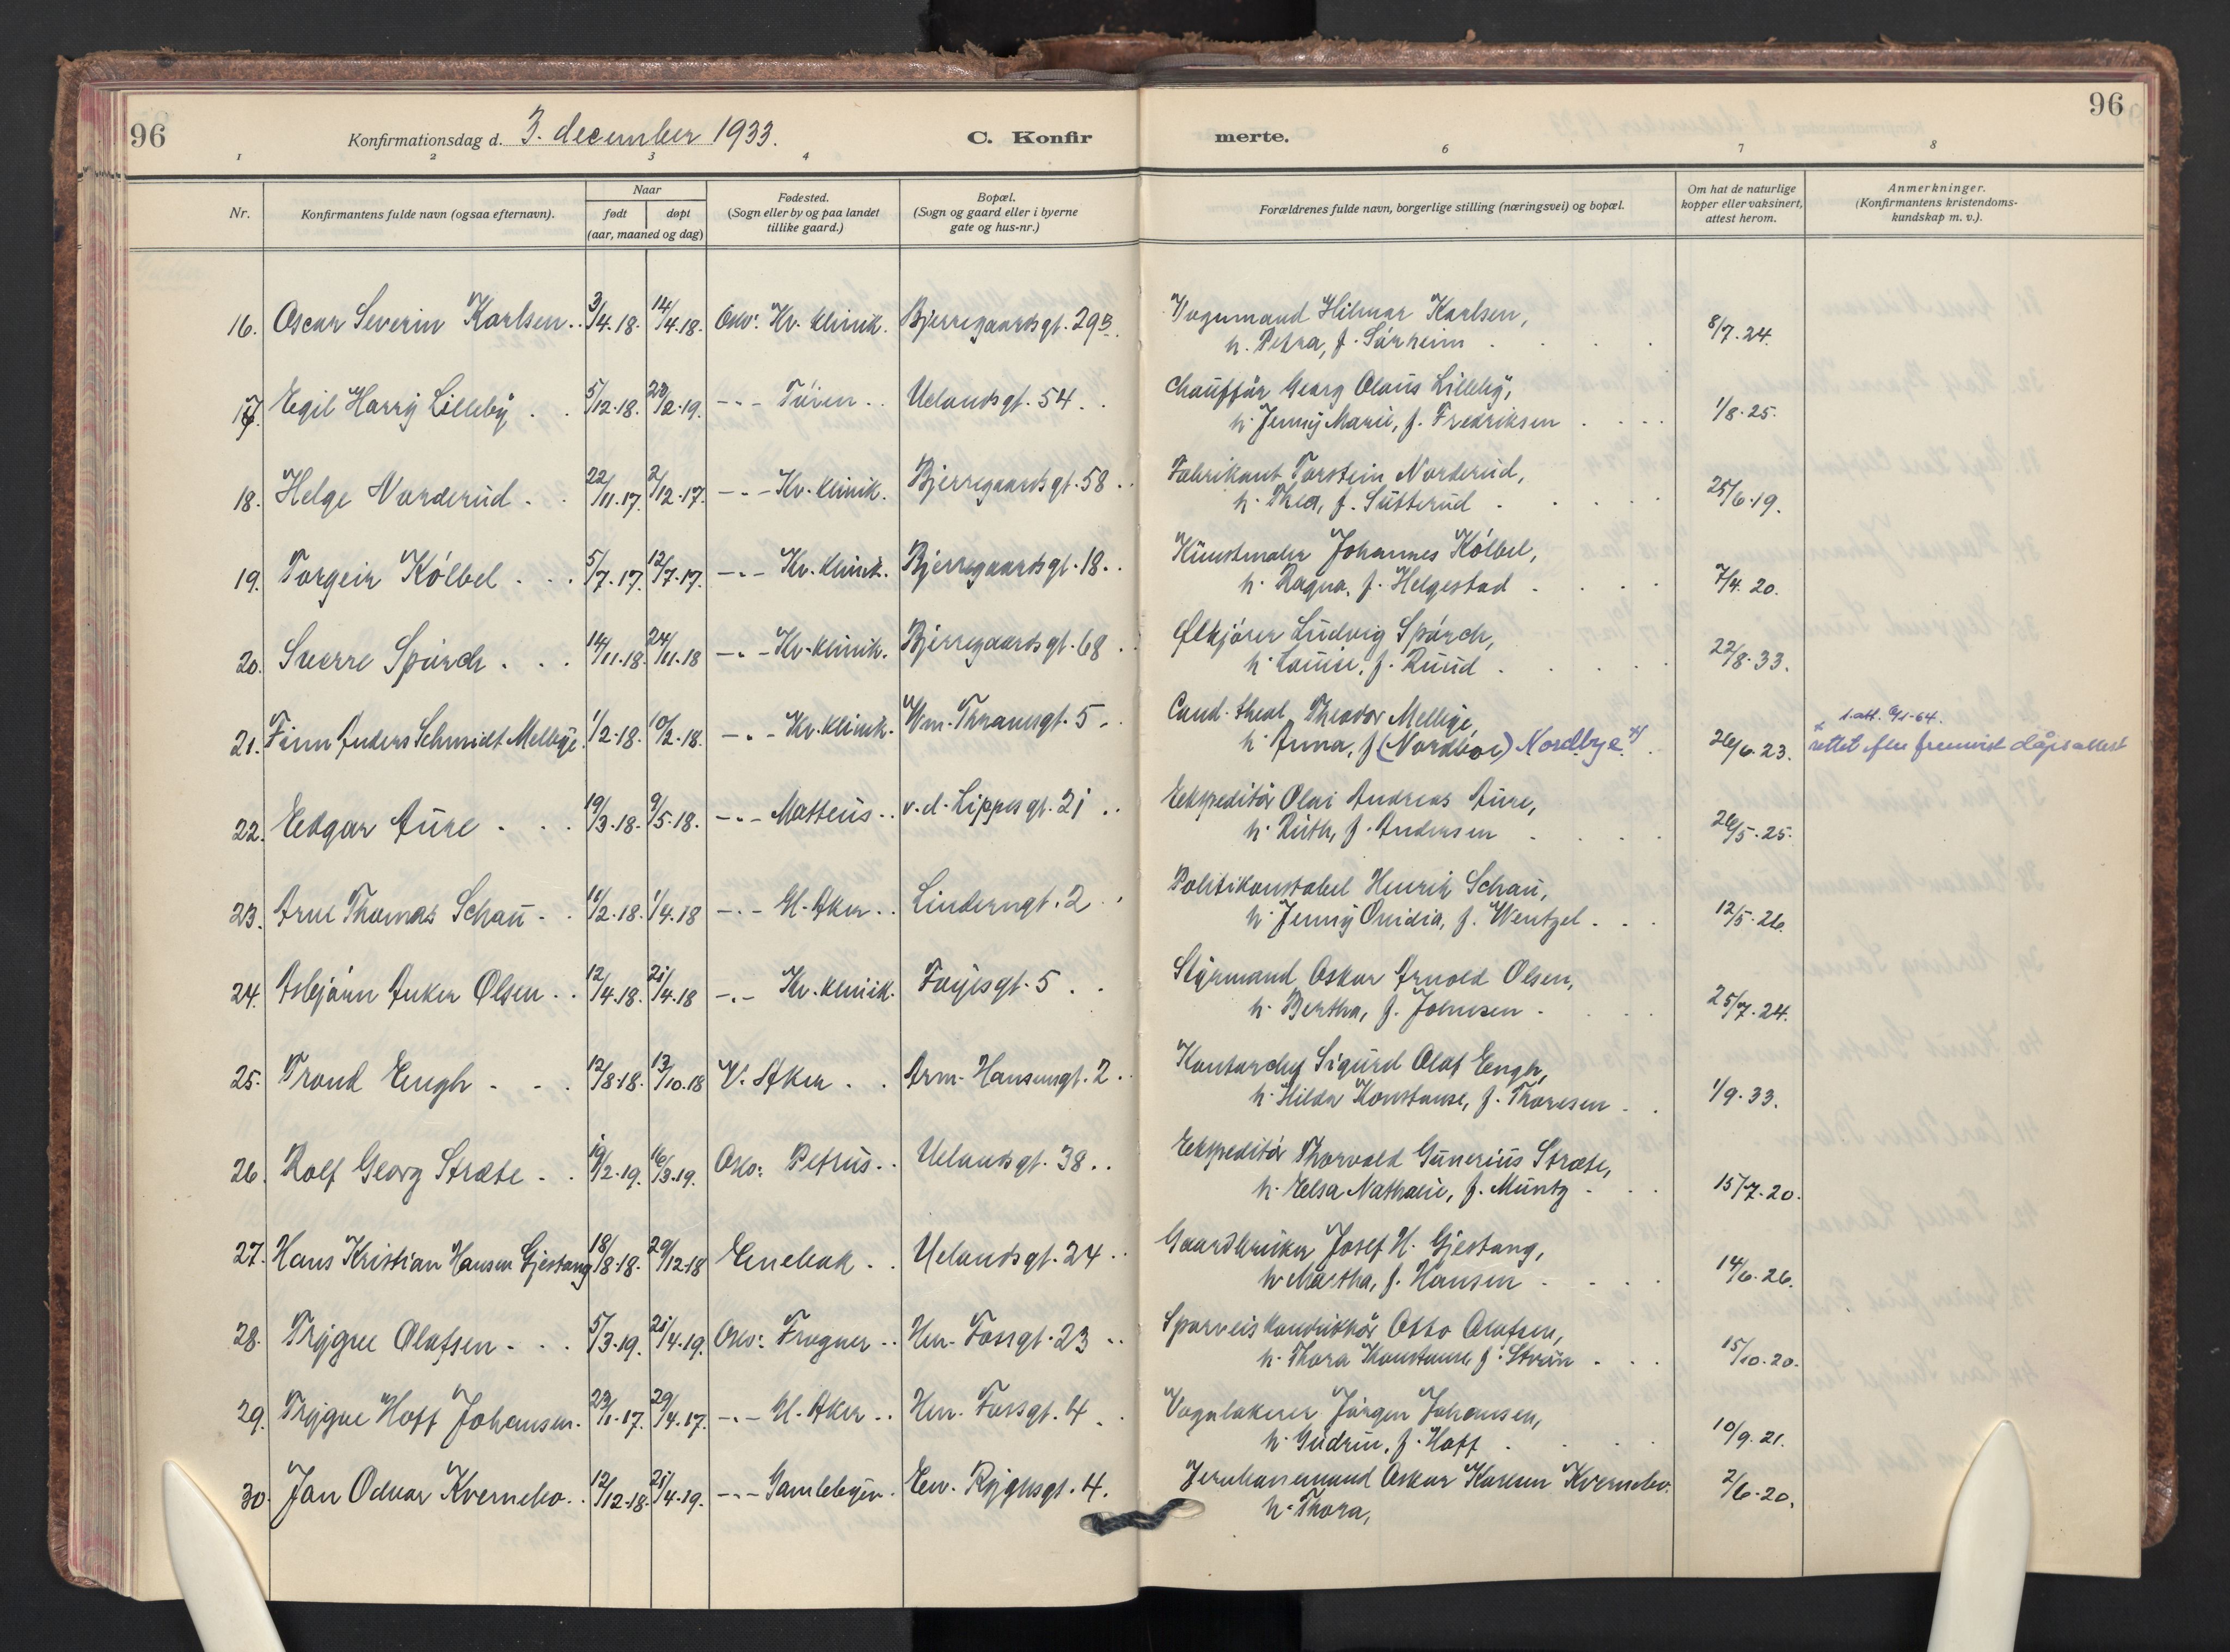 96
Konfirmationsdag d. 3. december 1933.
C. Konfir
merte.
96
1 2 3 4 6 7 8
Nr.
Konfirmantens fulde navn (ogsaa efternavn).
Naar
født døpt
(aar, maaned og dag)
Fødested.
(Sogn eller by og paa landet
tillike gaard.)
Bopæl.
(Sogn og gaard eller i byerne
gate og hus-nr.)
Forældrenes fulde navn, borgerlige stilling (næringsvei) og bopæl.
Om hat de naturlige
kopper eller vaksinert,
attest herom.
Anmerkninger.
(Konfirmantens kristendoms-
kundskap m. v.).
16. Oscar Severin Karlsen. 3/4.18. 14/4.18. Oslo: Kv. klinik. Bjerregaardsgt. 29B. Vognmand Hilmar Karlsen, 8/7.24.
h. Petra, f. Sørheim
17. Egil Harry Lilleby 5/12.18. 23/2.19. -.- Tøien. Uelandsgt. 54. Chauffør Georg Olaus Lilleby, 1/8.25.
h. Jenny Marie, f. Fredriksen
18. Helge Norderud 22/11.17. 2/12.17. -.- Kv. klinik. Bjerregaardsgt. 58 Fabrikant Torstein Norderud, 25/6.19.
h. Thea, f. Sütterud
19. Torgeir Kölbel 5/7.17. 12/7.17. -.- Kv. klinik. Bjerregaardsgt. 18. Kunstmaler Johannes Kölbel, 7/4.20.
h. Ragna, f. Helgestad
20. Sverre Spørck 14/11.18. 24/11.18 -.- Kv. klinik. Bjerregaardsgt. 68 Ølkjører Ludvig Spørck, 22/8.33.
h. Louise, f. Ruud
21. Finn Anders Schmidt Mellbye 1/2.18. 10/2.18. -.- Kv. klinik. Wm. Thranesgt. 5. Cand. theol. Theodor Mellbye, 1. att. 9/1-64.
h. Anna, f (Nordboe) Nordbye x) 26/6.23. x rettet efter fremvist dåpsattest
22. Edgar Aure 19/3.18. 9/5.18. -.- Matteus. v. d. Lippesgt. 21 Ekspeditør Olai Andreas Aure, 26/5.25.
h. Ruth, f. Andersen
23. Arne Thomas Schau 11/2.18. 1/4.18 -.- U. Aker. Linderngt. 2 Politikonstabel Henrik Schau, 12/5.26.
h. Jenny Ovidia, f. Wentzel
24. Asbjørn Anker Olsen 12/4.18. 21/4.18 -.- Kv. klinik. Foyesgt. 5 Styrmand Oskar Arnold Olsen, 25/7.24.
h. Bertha, f. Johnsen
25. Trond Engh 12/8.18. 13/10.18 V. Aker Arm. Hansensgt. 2. Kontorchef Sigurd Olaf Engh, 1/9.33.
h. Hilda Konstanse, f. Thoresen
26. Rolf Georg Stræte 19/2.19. 16/3.19. Oslo: Petrus. Uelandsgt. 38. Ekspeditør Thorvald Gunerius Stræte, 15/7.20.
h. Elsa Nathalie, f. Müntz
27. Hans Kristian Hansen Gjestang 18/8.18. 29/12.18 Enebak Uelandsgt. 24 Gaardbruker Josef H. Gjestang, 14/6.26.
h. Martha, f. Hansen
28. Trygve Olafsen 5/3.19. 21/4.19. Oslo: Frogner Hen. Fossgt. 23 Sporveiskonduktør Otto Olafsen, 15/10.20.
h. Thora Konstanse f. Strøm
29. Trygve Hoff Johansen. 23/1.17. 29/4.17. -.- U. Aker Hen. Fossgt. 4 Vognlakerer Jørgen Johansen, 10/9.21.
h. Gudrun, f. Hoff
30. Jan Odvar Kvernebo 12/12.18. 21/4.19. -.- Gamlebyen. Ew. Ryghsgt. 4. Jernbanemand Oskar Karlsen Kvernebo. 2/6.20.
h. Thora,